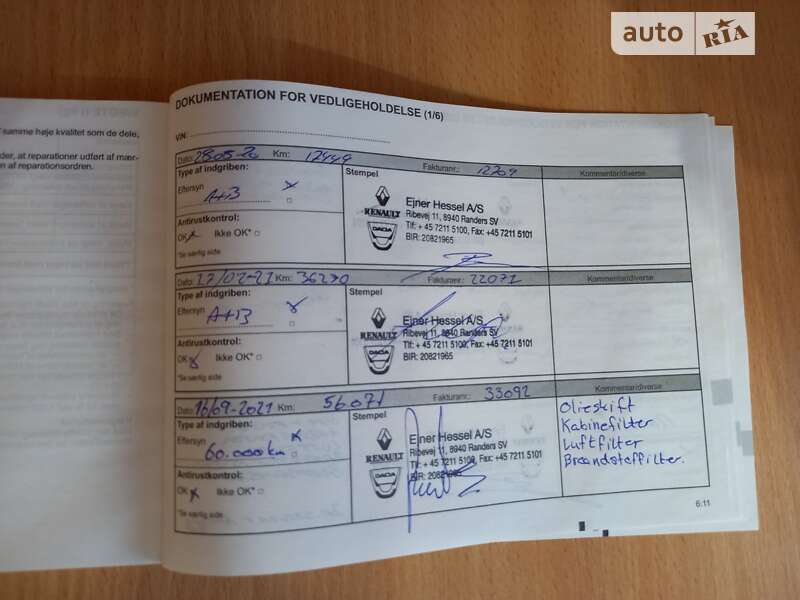 auto RIA
samme høje kvalitet som de dele,
der, at reparationer udført af mær-
n af reparationsordren.
DOKUMENTATION FOR VEDLIGEHOLDELSE (1/6)
VIN:
Dato: 28-05-20 Km: 12449 Fakturanr.: 12209 Kommentar/diverse
Type af indgriben:
Eftersyn
A+B
Antirustkontrol:
OK Ikke OK*
*Se særlig side
Stempel
RENAULT
DACIA
Ejner Hessel A/S
Ribevej 11, 8940 Randers SV
Tlf: + 45 7211 5100, Fax: +45 7211 5101
BIR: 20821965
Dato: 17/02-21 Km: 36270 Fakturanr.: 22071 Kommentar/diverse
Type af indgriben:
Eftersyn
A+B
Antirustkontrol:
OK Ikke OK*
*Se særlig side
Stempel
RENAULT
DACIA
Ejner Hessel A/S
Ribevej 11, 8940 Randers SV
Tlf: + 45 7211 5100, Fax: +45 7211 5101
BIR: 20821965
Dato: 16/09-2021 Km: 56.071 Fakturanr.: 33092 Kommentar/diverse
Type af indgriben:
Eftersyn
60.000km
Antirustkontrol:
OK Ikke OK*
*Se særlig side
Stempel
RENAULT
DACIA
Ejner Hessel A/S
Ribevej 11, 8940 Randers SV
Tlf: + 45 7211 5100, Fax: +45 7211 5101
BIR: 20821965
Olieskift
Kabinefilter
Luftfilter
Brændstoffilter.
6.11